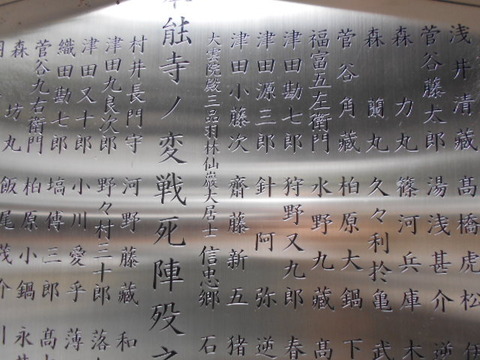 浅井清蔵 高橋虎松
菅谷藤太郎 湯浅甚介
森 力丸 篠河兵庫
森 蘭丸 久々利於亀
菅谷角蔵 柏原大鍋
福富五左衛門 水野九蔵
津田勘七郎 狩野又九郎
津田源三郎 針 阿弥
津田小藤次 齋藤新五
大雲院殿三品羽林仙巌大居士 信忠郷
能寺ノ変戦死陣歿
村井長門守 河野藤蔵
津田九良次郎 野々村三十郎
津田又十郎 小川愛平
織田勘七郎 塙傳三郎
菅谷九右衛門 柏原小鍋
森 坊丸 飯尾茂介